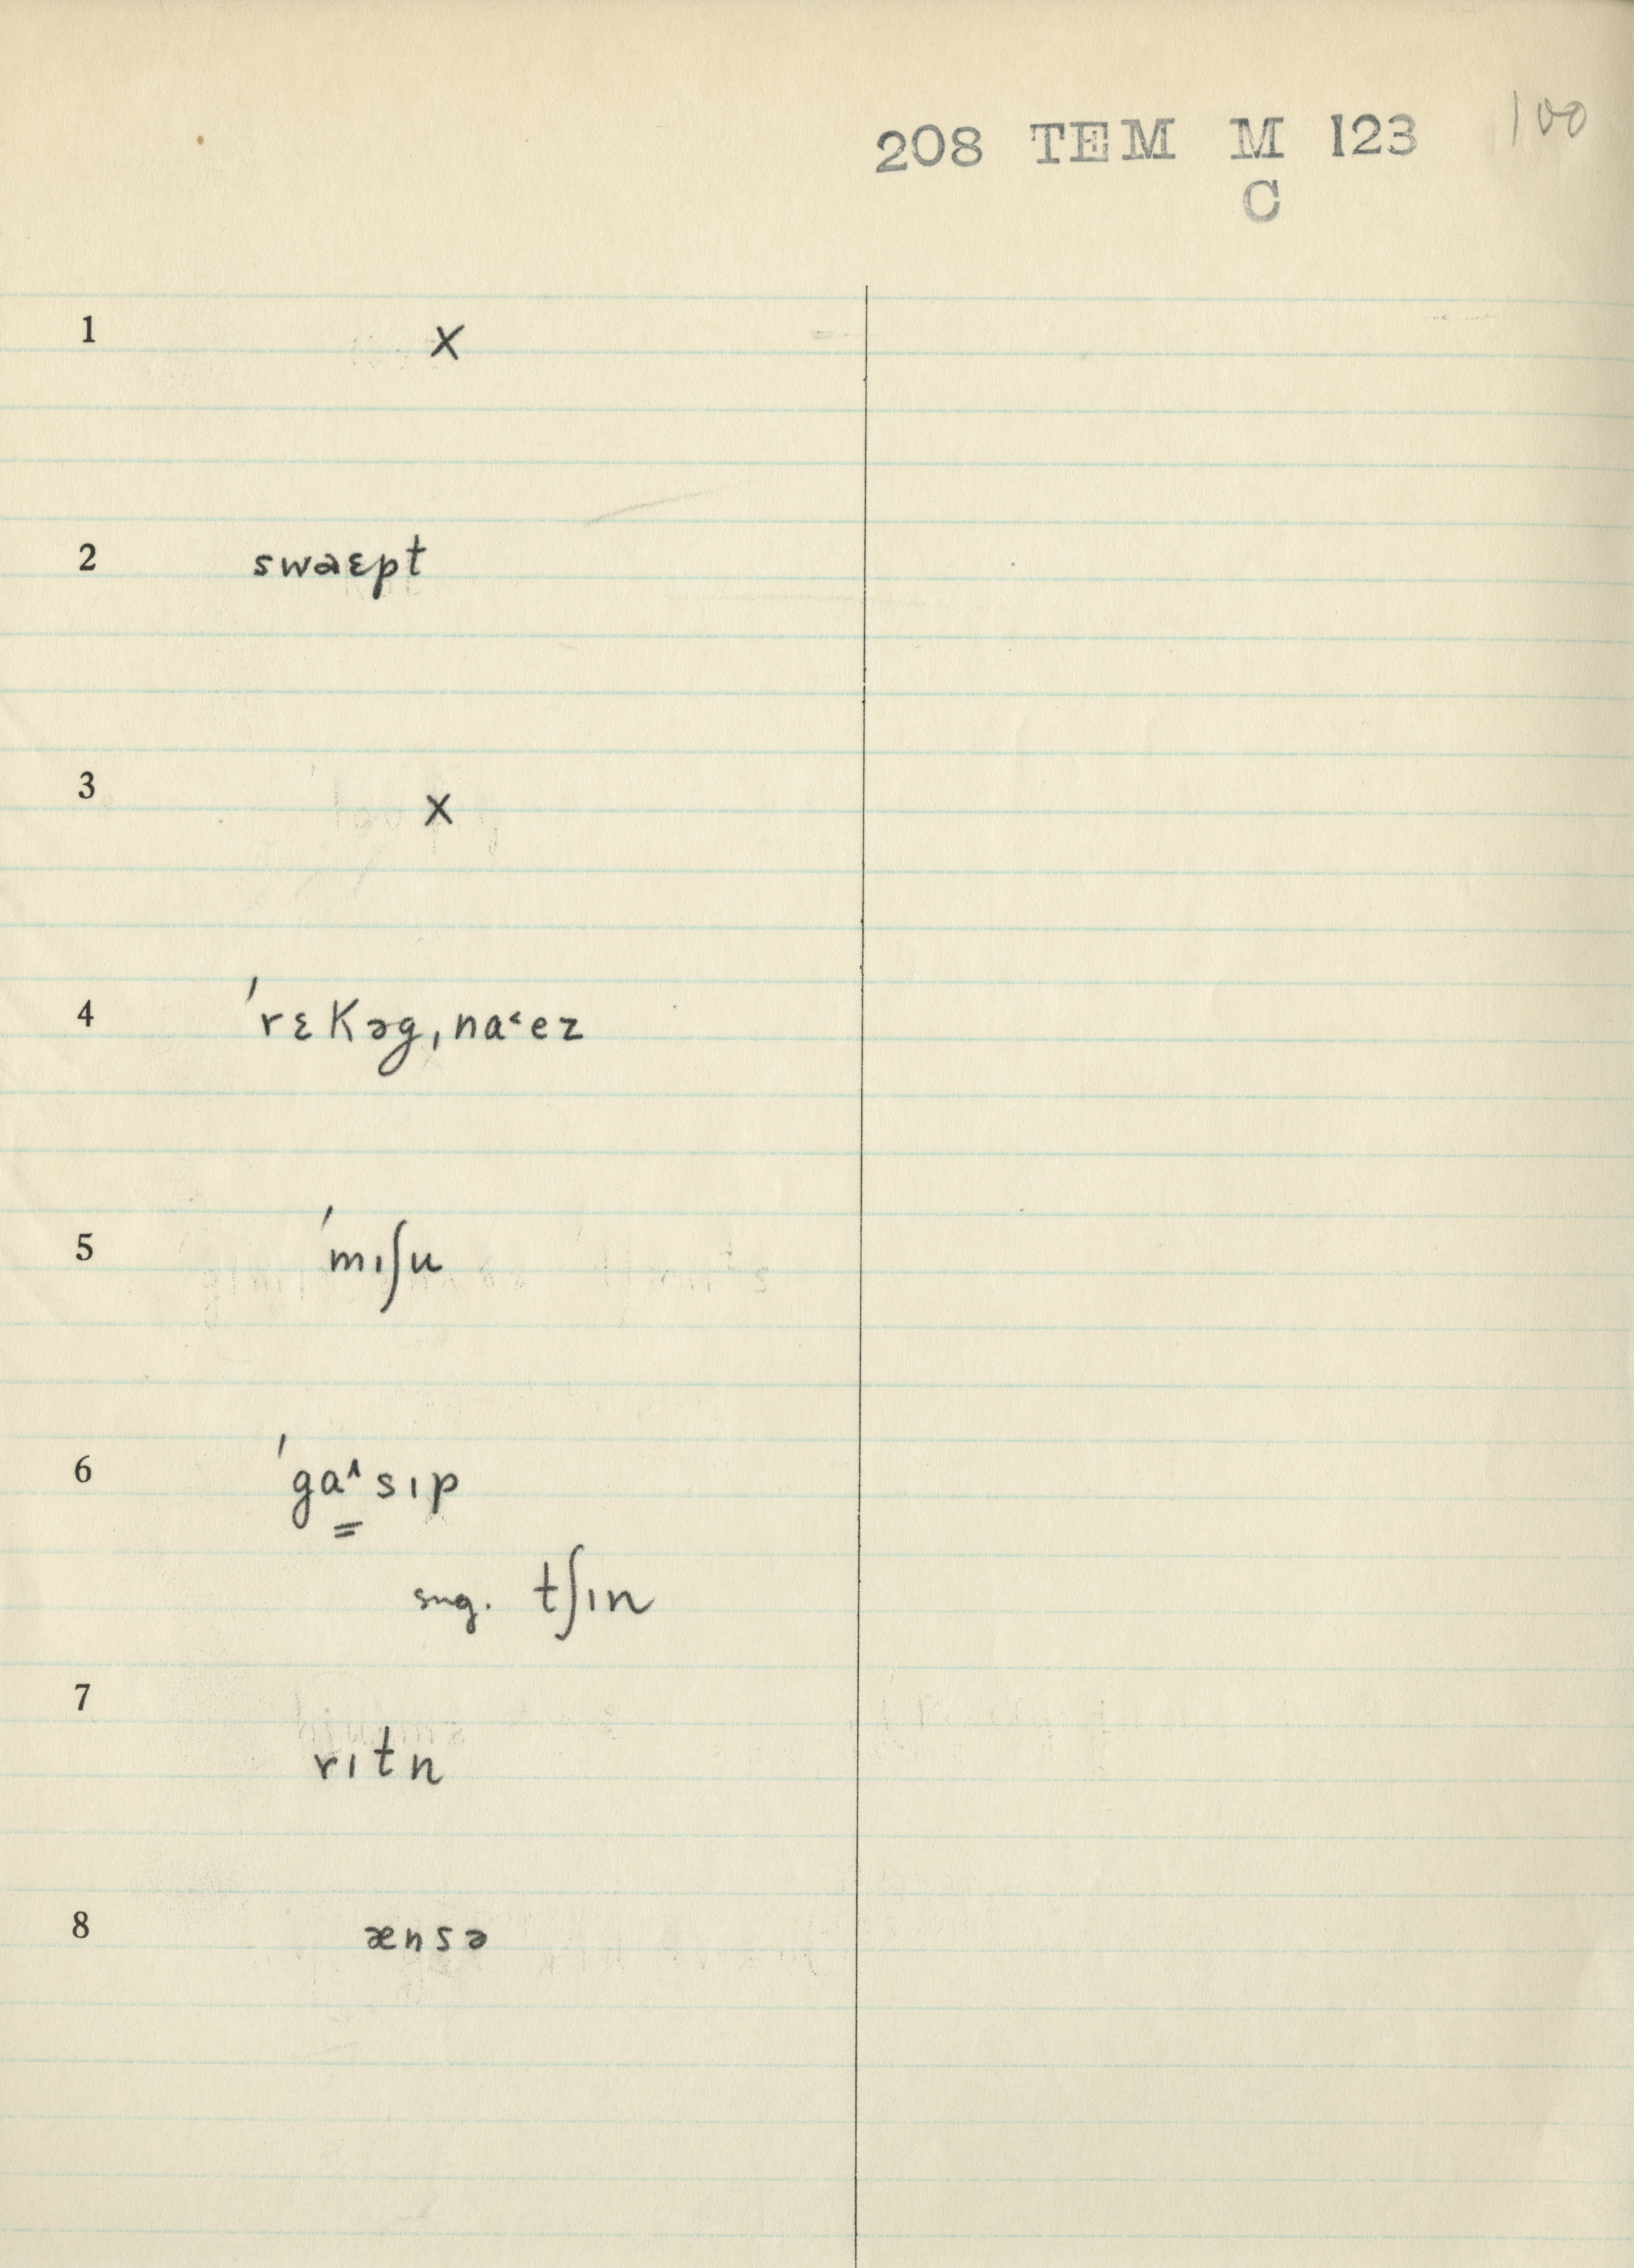 208 TEM M 123 100
C
1 X
2 swaɛpt
3 X
4 ˈrɛKəg,na˂ez
5 ˈmıʃu
6 ˈga˄sıp
sug. tʃın
7 rıtn
8 ænsə